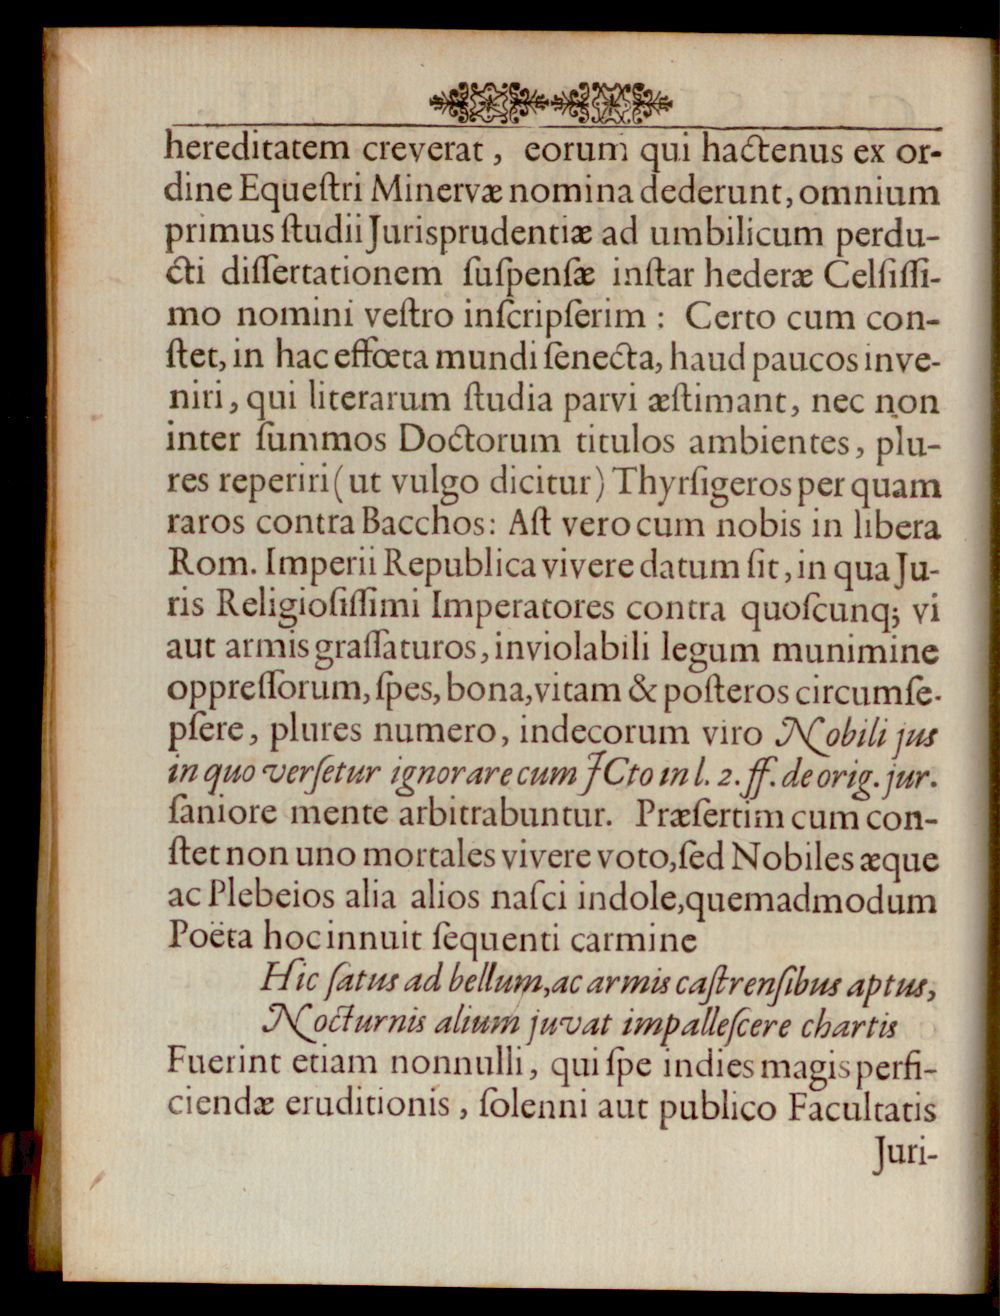 hereditatem creverat, eorum qui hactenus ex or-
dine Equeſtri Minervæ nomina dederunt, omnium
primus ſtudii Jurisprudentiæ ad umbilicum perdu-
cti diſſertationem ſuſpenſæ inſtar hederæ Celſiſſi-
mo nomini veſtro inſcripſerim : Certo cum con-
ſtet, in hac effœta mundi ſenecta, haud paucos inve-
niri, qui literarum ſtudia parvi æſtimant, nec non
inter ſummos Doctorum titulos ambientes, plu-
res reperiri (ut vulgo dicitur) Thyrſigeros per quam
raros contra Bacchos: Aſt vero cum nobis in libera
Rom. Imperii Republica vivere datum ſit, in qua Ju-
ris Religioſiſſimi Imperatores contra quoſcunq; vi
aut armis graſſaturos, inviolabili legum munimine
oppreſſorum, ſpes, bona, vitam & poſteros circumſe-
pſere, plures numero, indecorum viro Nobili jus
in quo verſetur ignorare cum JCto in l. 2. ff. de orig. jur.
ſaniore mente arbitrabuntur. Præſertim cum con-
ſtet non uno mortales vivere voto, ſed Nobiles æque
ac Plebeios alia alios naſci indole, quemadmodum
Poëta hoc innuit ſequenti carmine
Hic ſatus ad bellum, ac armis caſtrenſibus aptus,
Nocturnis alium juvat impalleſcere chartis
Fuerint etiam nonnulli, qui ſpe indies magis perfi-
ciendæ eruditionis, ſolenni aut publico Facultatis
Juri-